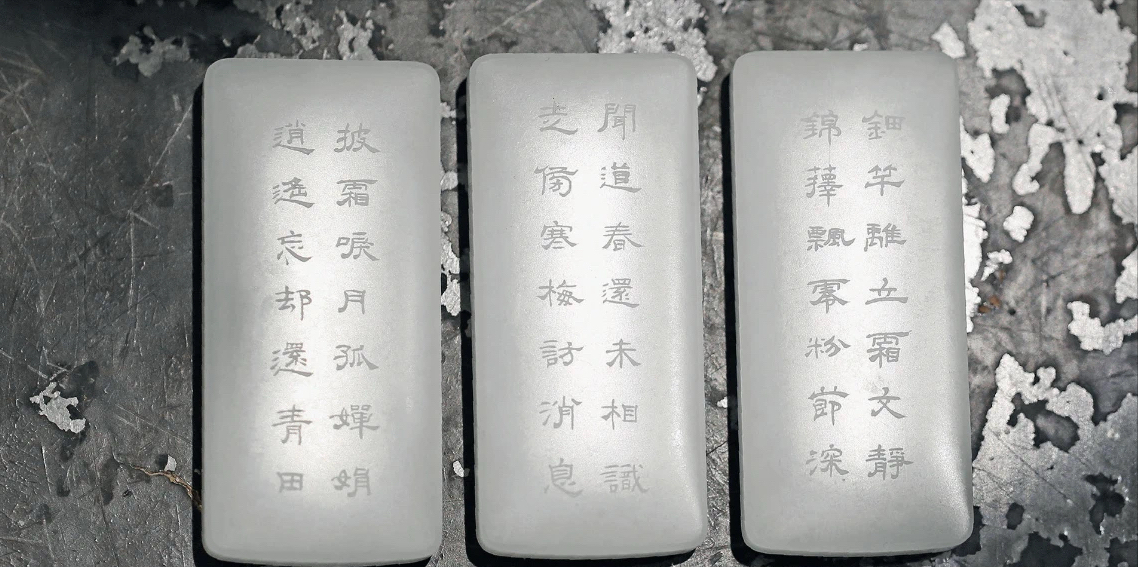 鈿竿離立霜文靜
錦籜飄零粉節深
聞道春還未相識
走傍寒梅訪消息
披霜唳月孤嬋娟
逍遙忘却還青田